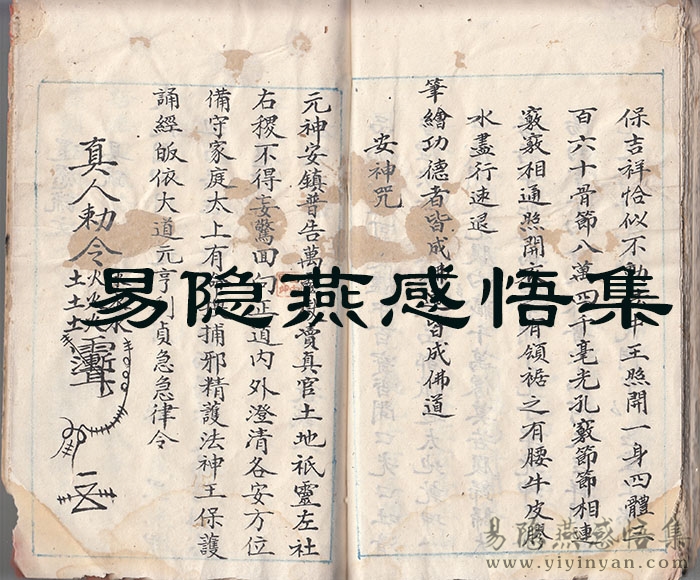 保吉祥恰似不中王照開一身四體
百六十骨節八萬四千毫光孔竅節節相連
竅竅相通照開有領裾之有腰牛皮膠
水盡行速退
筆繪功德者皆成皆成佛道
安神咒
元神安鎮普告萬瀆真官土地祇靈左社
右稷不得妄驚回向正道内外澄清各安方位
備守家庭太上有捕邪精護法神王保護
誦經皈依大道元亨利貞急急律令
真人勅令
易隐燕感悟集
易隐燕感悟集
www.yiyinyan.com